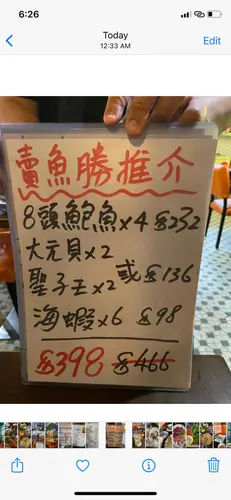 6:26
Today
12:33 AM
Edit
賣魚勝推介
8頭鮑魚x4 $232
大元貝x2
聖子王x2 或 $136
海蝦x6 $98
$398 $466